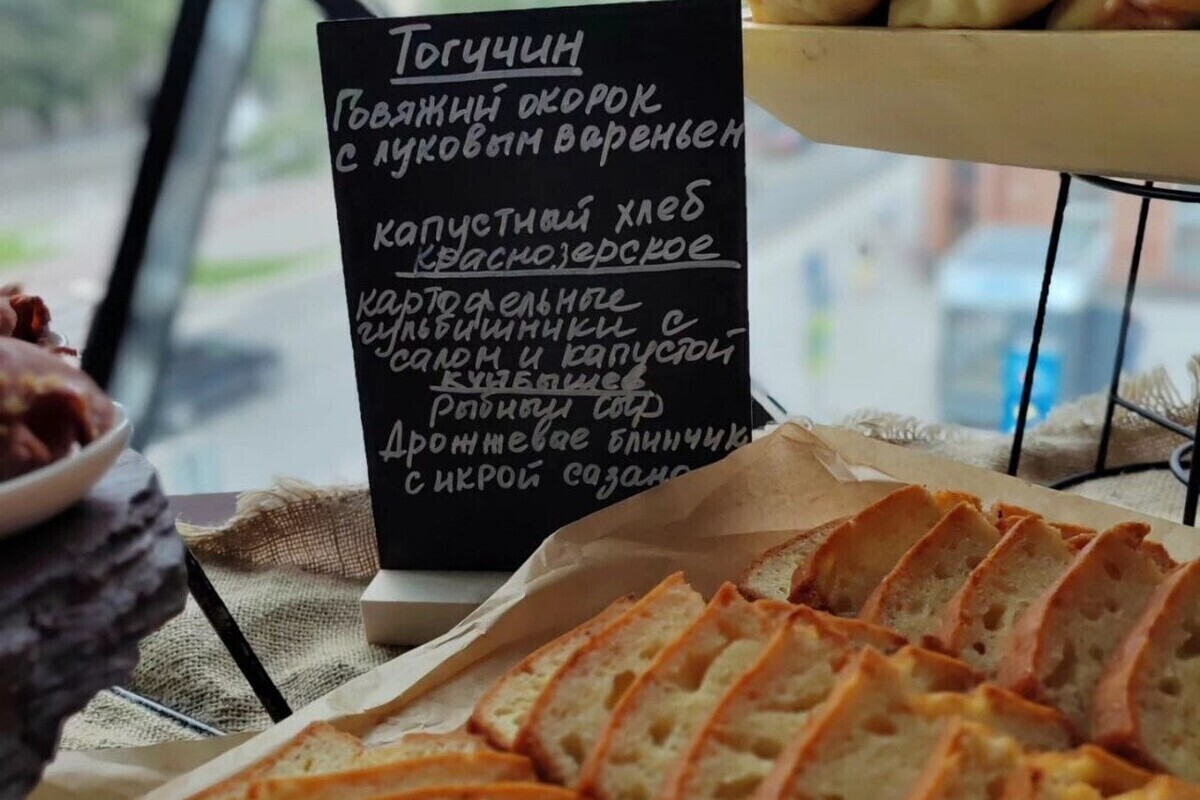 Тогучин
Говяжий окорок
с луковым вареньем
капустный хлеб
Краснозерское
картофельные
гульбишники с
салом и капустой
Куйбышев
Рыбный сыр
Дрожжевае блинчик
с икрой сазана